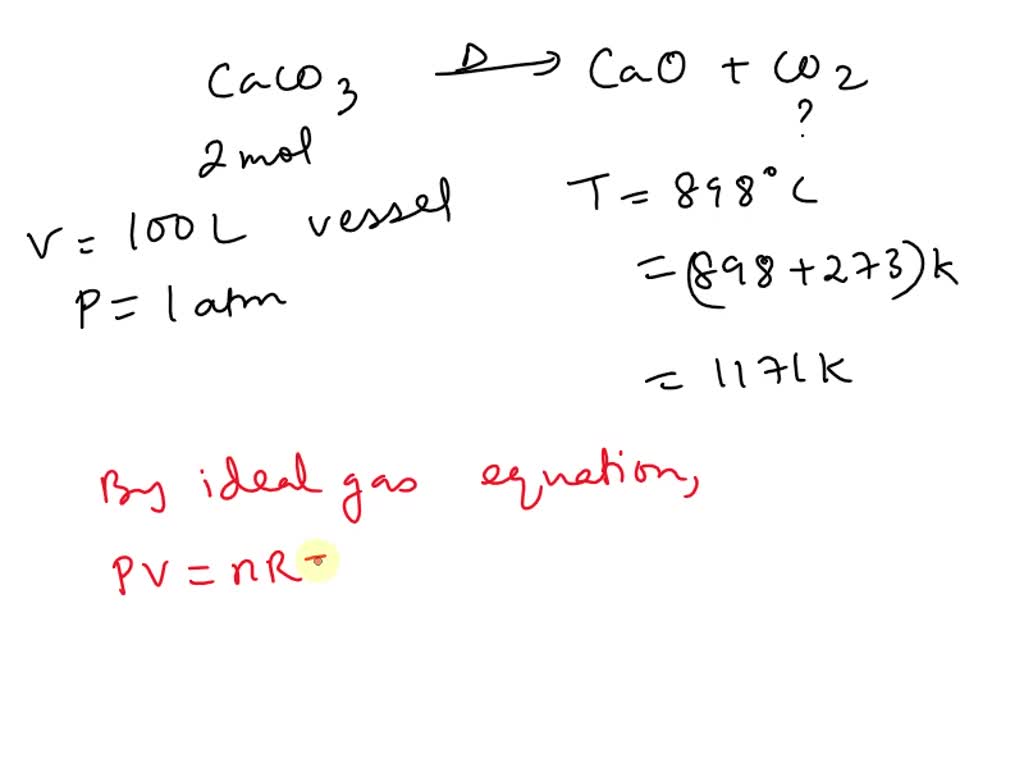 CaCO3 Δ→ CaO + CO2
?
2 mol
V = 100L vessel T = 898°C
P = 1 atm = (898+273)K
= 1171K
By ideal gas equation,
PV = nRT